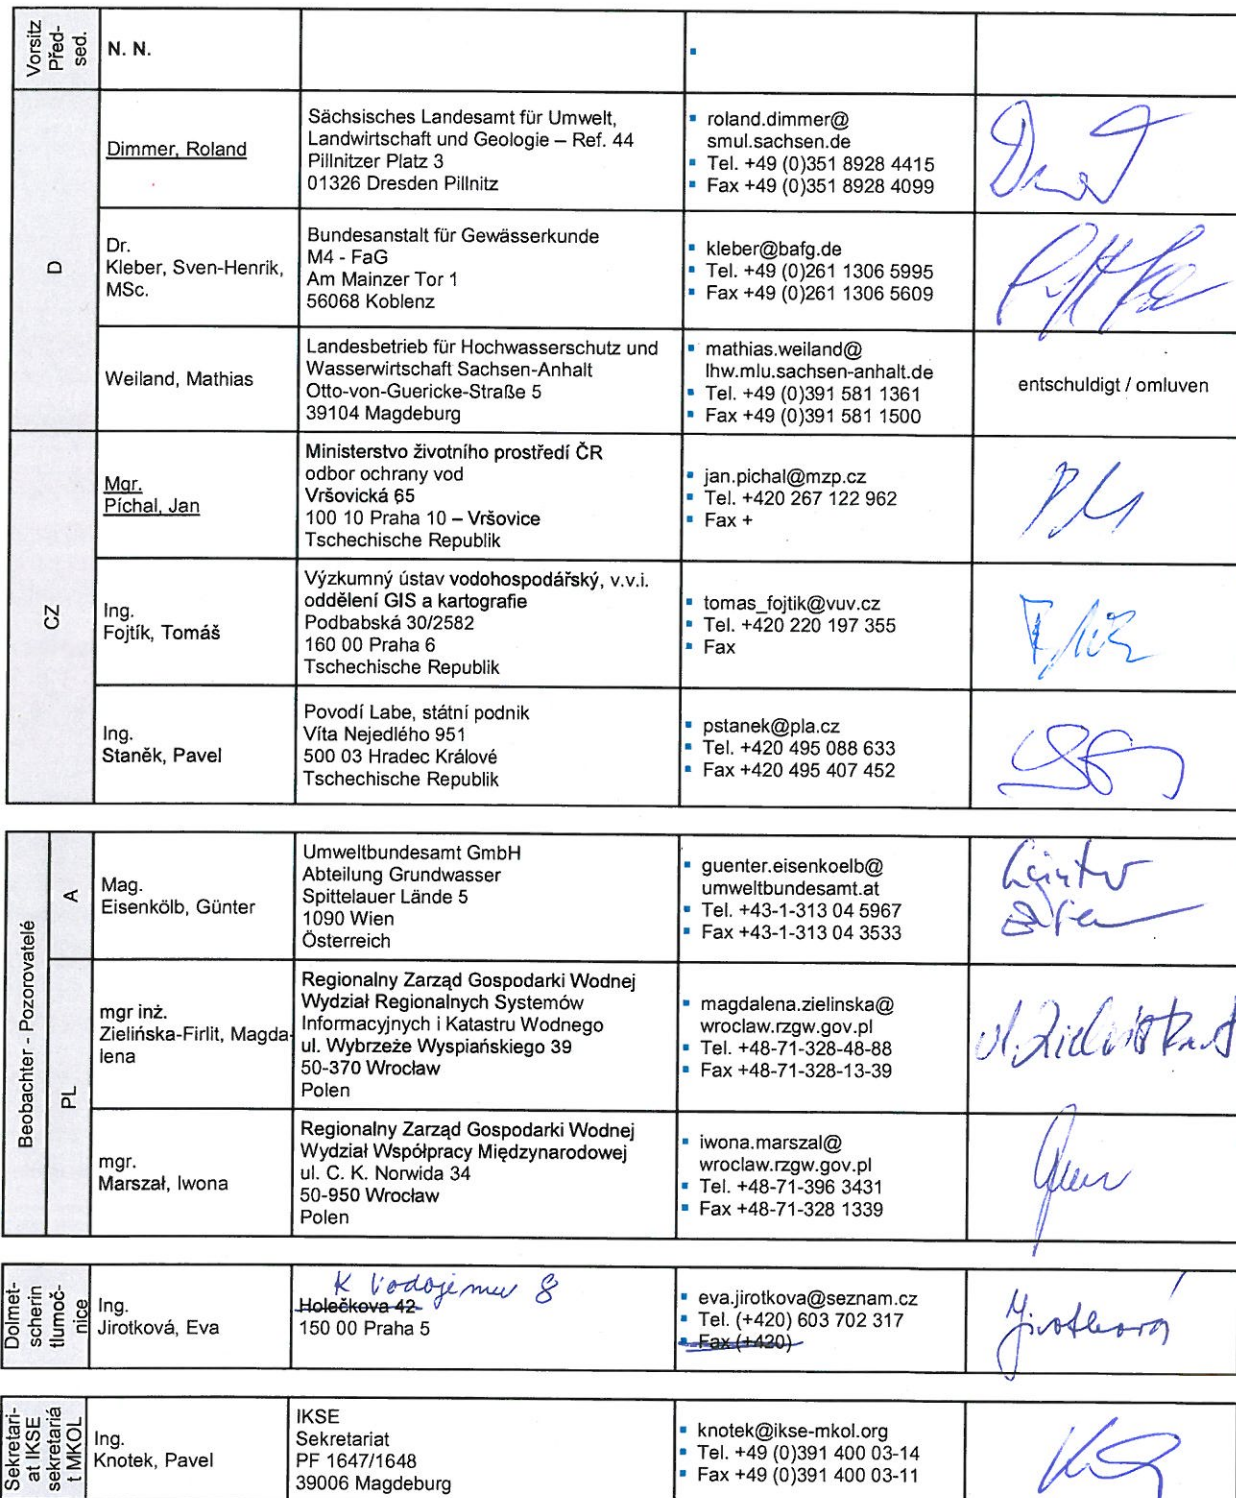 Vorsitz
Před-
sed.
N. N.
D
Dimmer, Roland
Sächsisches Landesamt für Umwelt,
Landwirtschaft und Geologie – Ref. 44
Pillnitzer Platz 3
01326 Dresden Pillnitz
roland.dimmer@
smul.sachsen.de
Tel. +49 (0)351 8928 4415
Fax +49 (0)351 8928 4099
Dr.
Kleber, Sven-Henrik,
MSc.
Bundesanstalt für Gewässerkunde
M4 - FaG
Am Mainzer Tor 1
56068 Koblenz
kleber@bafg.de
Tel. +49 (0)261 1306 5995
Fax +49 (0)261 1306 5609
Weiland, Mathias
Landesbetrieb für Hochwasserschutz und
Wasserwirtschaft Sachsen-Anhalt
Otto-von-Guericke-Straße 5
39104 Magdeburg
mathias.weiland@
lhw.mlu.sachsen-anhalt.de
Tel. +49 (0)391 581 1361
Fax +49 (0)391 581 1500
entschuldigt / omluven
CZ
Mgr.
Píchal, Jan
Ministerstvo životního prostředí ČR
odbor ochrany vod
Vršovická 65
100 10 Praha 10 – Vršovice
Tschechische Republik
jan.pichal@mzp.cz
Tel. +420 267 122 962
Fax +
Ing.
Fojtík, Tomáš
Výzkumný ústav vodohospodářský, v.v.i.
oddělení GIS a kartografie
Podbabská 30/2582
160 00 Praha 6
Tschechische Republik
tomas_fojtik@vuv.cz
Tel. +420 220 197 355
Fax
Ing.
Staněk, Pavel
Povodí Labe, státní podnik
Víta Nejedlého 951
500 03 Hradec Králové
Tschechische Republik
pstanek@pla.cz
Tel. +420 495 088 633
Fax +420 495 407 452
Beobachter - Pozorovatelé
A
Mag.
Eisenkölb, Günter
Umweltbundesamt GmbH
Abteilung Grundwasser
Spittelauer Lände 5
1090 Wien
Österreich
guenter.eisenkoelb@
umweltbundesamt.at
Tel. +43-1-313 04 5967
Fax +43-1-313 04 3533
Günter
PL
mgr inż.
Zielińska-Firlit, Magda-
lena
Regionalny Zarząd Gospodarki Wodnej
Wydział Regionalnych Systemów
Informacyjnych i Katastru Wodnego
ul. Wybrzeże Wyspiańskiego 39
50-370 Wrocław
Polen
magdalena.zielinska@
wroclaw.rzgw.gov.pl
Tel. +48-71-328-48-88
Fax +48-71-328-13-39
mgr.
Marszał, Iwona
Regionalny Zarząd Gospodarki Wodnej
Wydział Współpracy Międzynarodowej
ul. C. K. Norwida 34
50-950 Wrocław
Polen
iwona.marszal@
wroclaw.rzgw.gov.pl
Tel. +48-71-396 3431
Fax +48-71-328 1339
Dolmet-
scherin
tlumoč-
nice
Ing.
Jirotková, Eva
K Vodojemu 8
Holečkova 42
150 00 Praha 5
eva.jirotkova@seznam.cz
Tel. (+420) 603 702 317
Fax (+420)
Jirotková
Sekretari-
at IKSE
sekretariá
t MKOL
Ing.
Knotek, Pavel
IKSE
Sekretariat
PF 1647/1648
39006 Magdeburg
knotek@ikse-mkol.org
Tel. +49 (0)391 400 03-14
Fax +49 (0)391 400 03-11